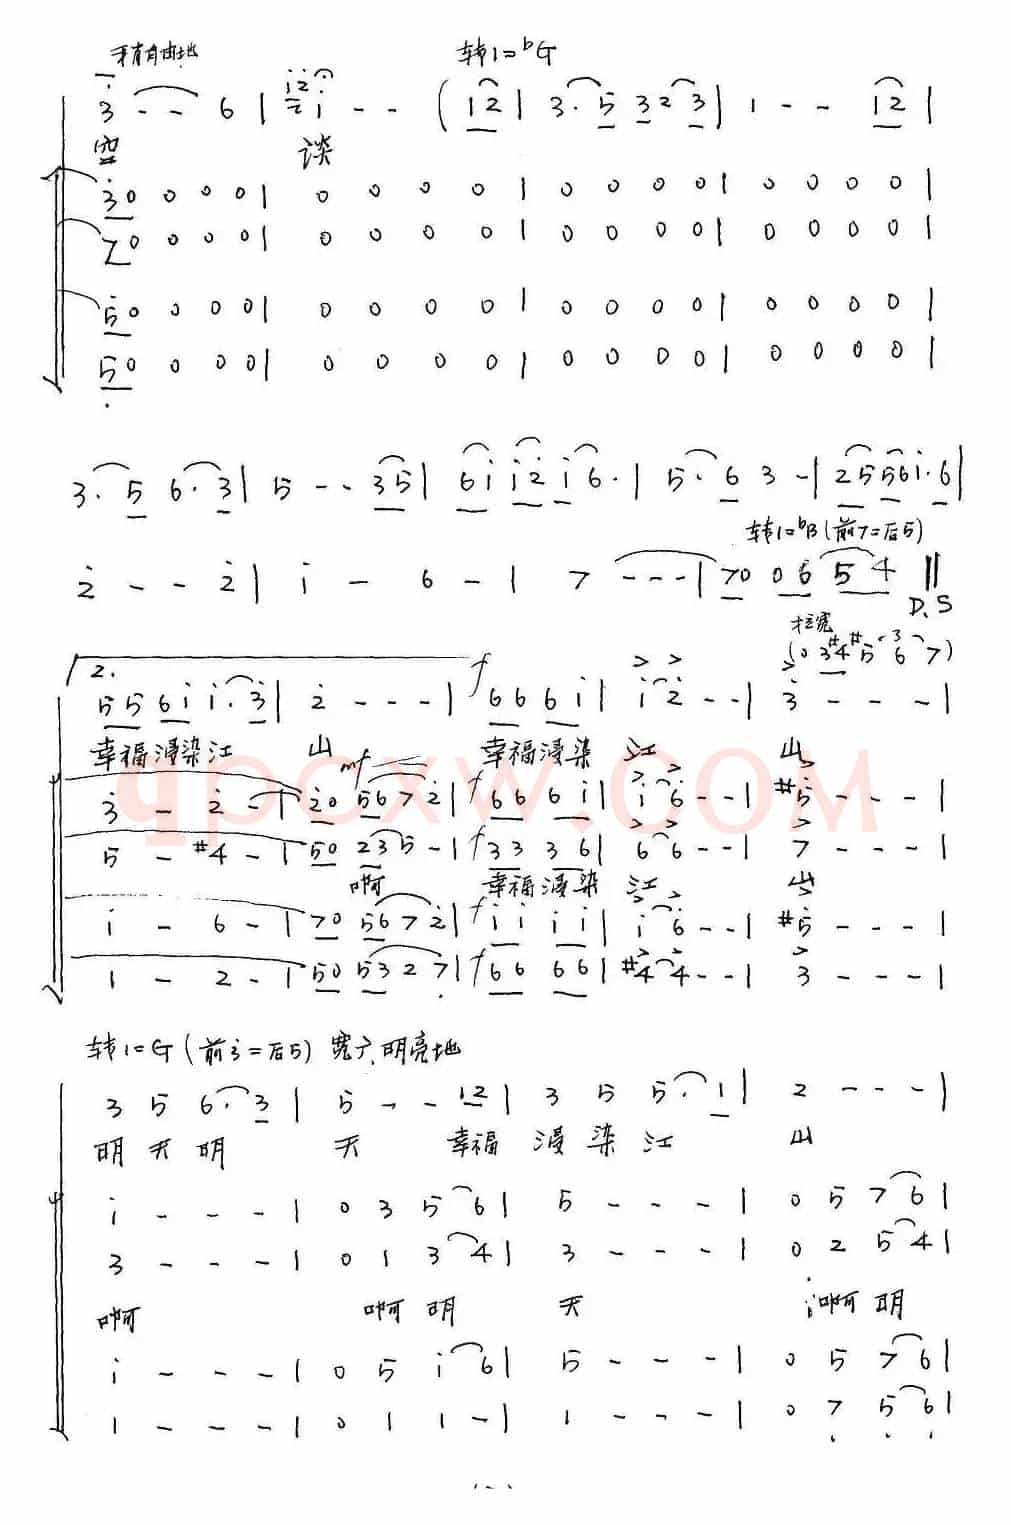 转1=bG
3 - - 6 | i - - ( 1 2 | 3 . 5 3 2 3 | 1 - - 1 2 |
空 谈
3 0 0 0 0 | 0 0 0 0 | 0 0 0 0 | 0 0 0 0 |
7 0 0 0 0 | 0 0 0 0 | 0 0 0 0 | 0 0 0 0 |
5 0 0 0 0 | 0 0 0 0 | 0 0 0 0 | 0 0 0 0 |
5 0 0 0 0 | 0 0 0 0 | 0 0 0 0 | 0 0 0 0 |
3 . 5 6 . 3 | 5 - - 3 5 | 6 i i 2 i 6 . | 5 . 6 3 - | 2 5 5 6 i . 6 |
转1=bB (前7=后5)
2 - - 2 | i - 6 - | 7 - - - | 7 0 0 6 5 4 ‖
D.S
(0 3 #4 #5 6 7)
2. f
5 5 6 i i . 3 | 2 - - - | 6 6 6 i | i 2 - - | 3 - - - |
幸福浸染江 山 幸福浸染 江 山
mf f
3 - 2 - | 2 0 5 6 7 2 | 6 6 6 i | i 6 - - | #5 - - - |
f
5 - #4 - | 5 0 2 3 5 - | 3 3 3 6 | 6 6 - - | 7 - - - |
啊 幸福浸染 江 山
f
i - 6 - | 7 0 5 6 7 2 | i i i i | i 6 - - | #5 - - - |
f
1 - 2 - | 5 0 5 3 2 7 | 6 6 6 6 | #4 4 - - | 3 - - - |
转1=G (前3=后5) 宽广、明亮地
3 5 6 . 3 | 5 - - 1 2 | 3 5 5 . 1 | 2 - - - |
明天明 天 幸福 浸染江 山
i - - - | 0 3 5 6 | 5 - - - | 0 5 7 6 |
3 - - - | 0 1 3 4 | 3 - - - | 0 2 5 4 |
啊 啊 明 天 啊 明
i - - - | 0 5 i 6 | 5 - - - | 0 5 7 6 |
1 - - - | 0 1 1 - | 1 - - - | 0 7 5 6 |
qpcxw.com